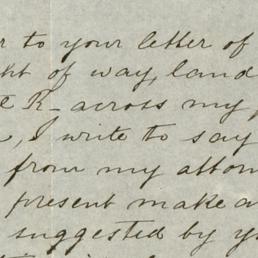 to your letter of
of way, land
R- across my
, I write to say
from my
present make
suggested by